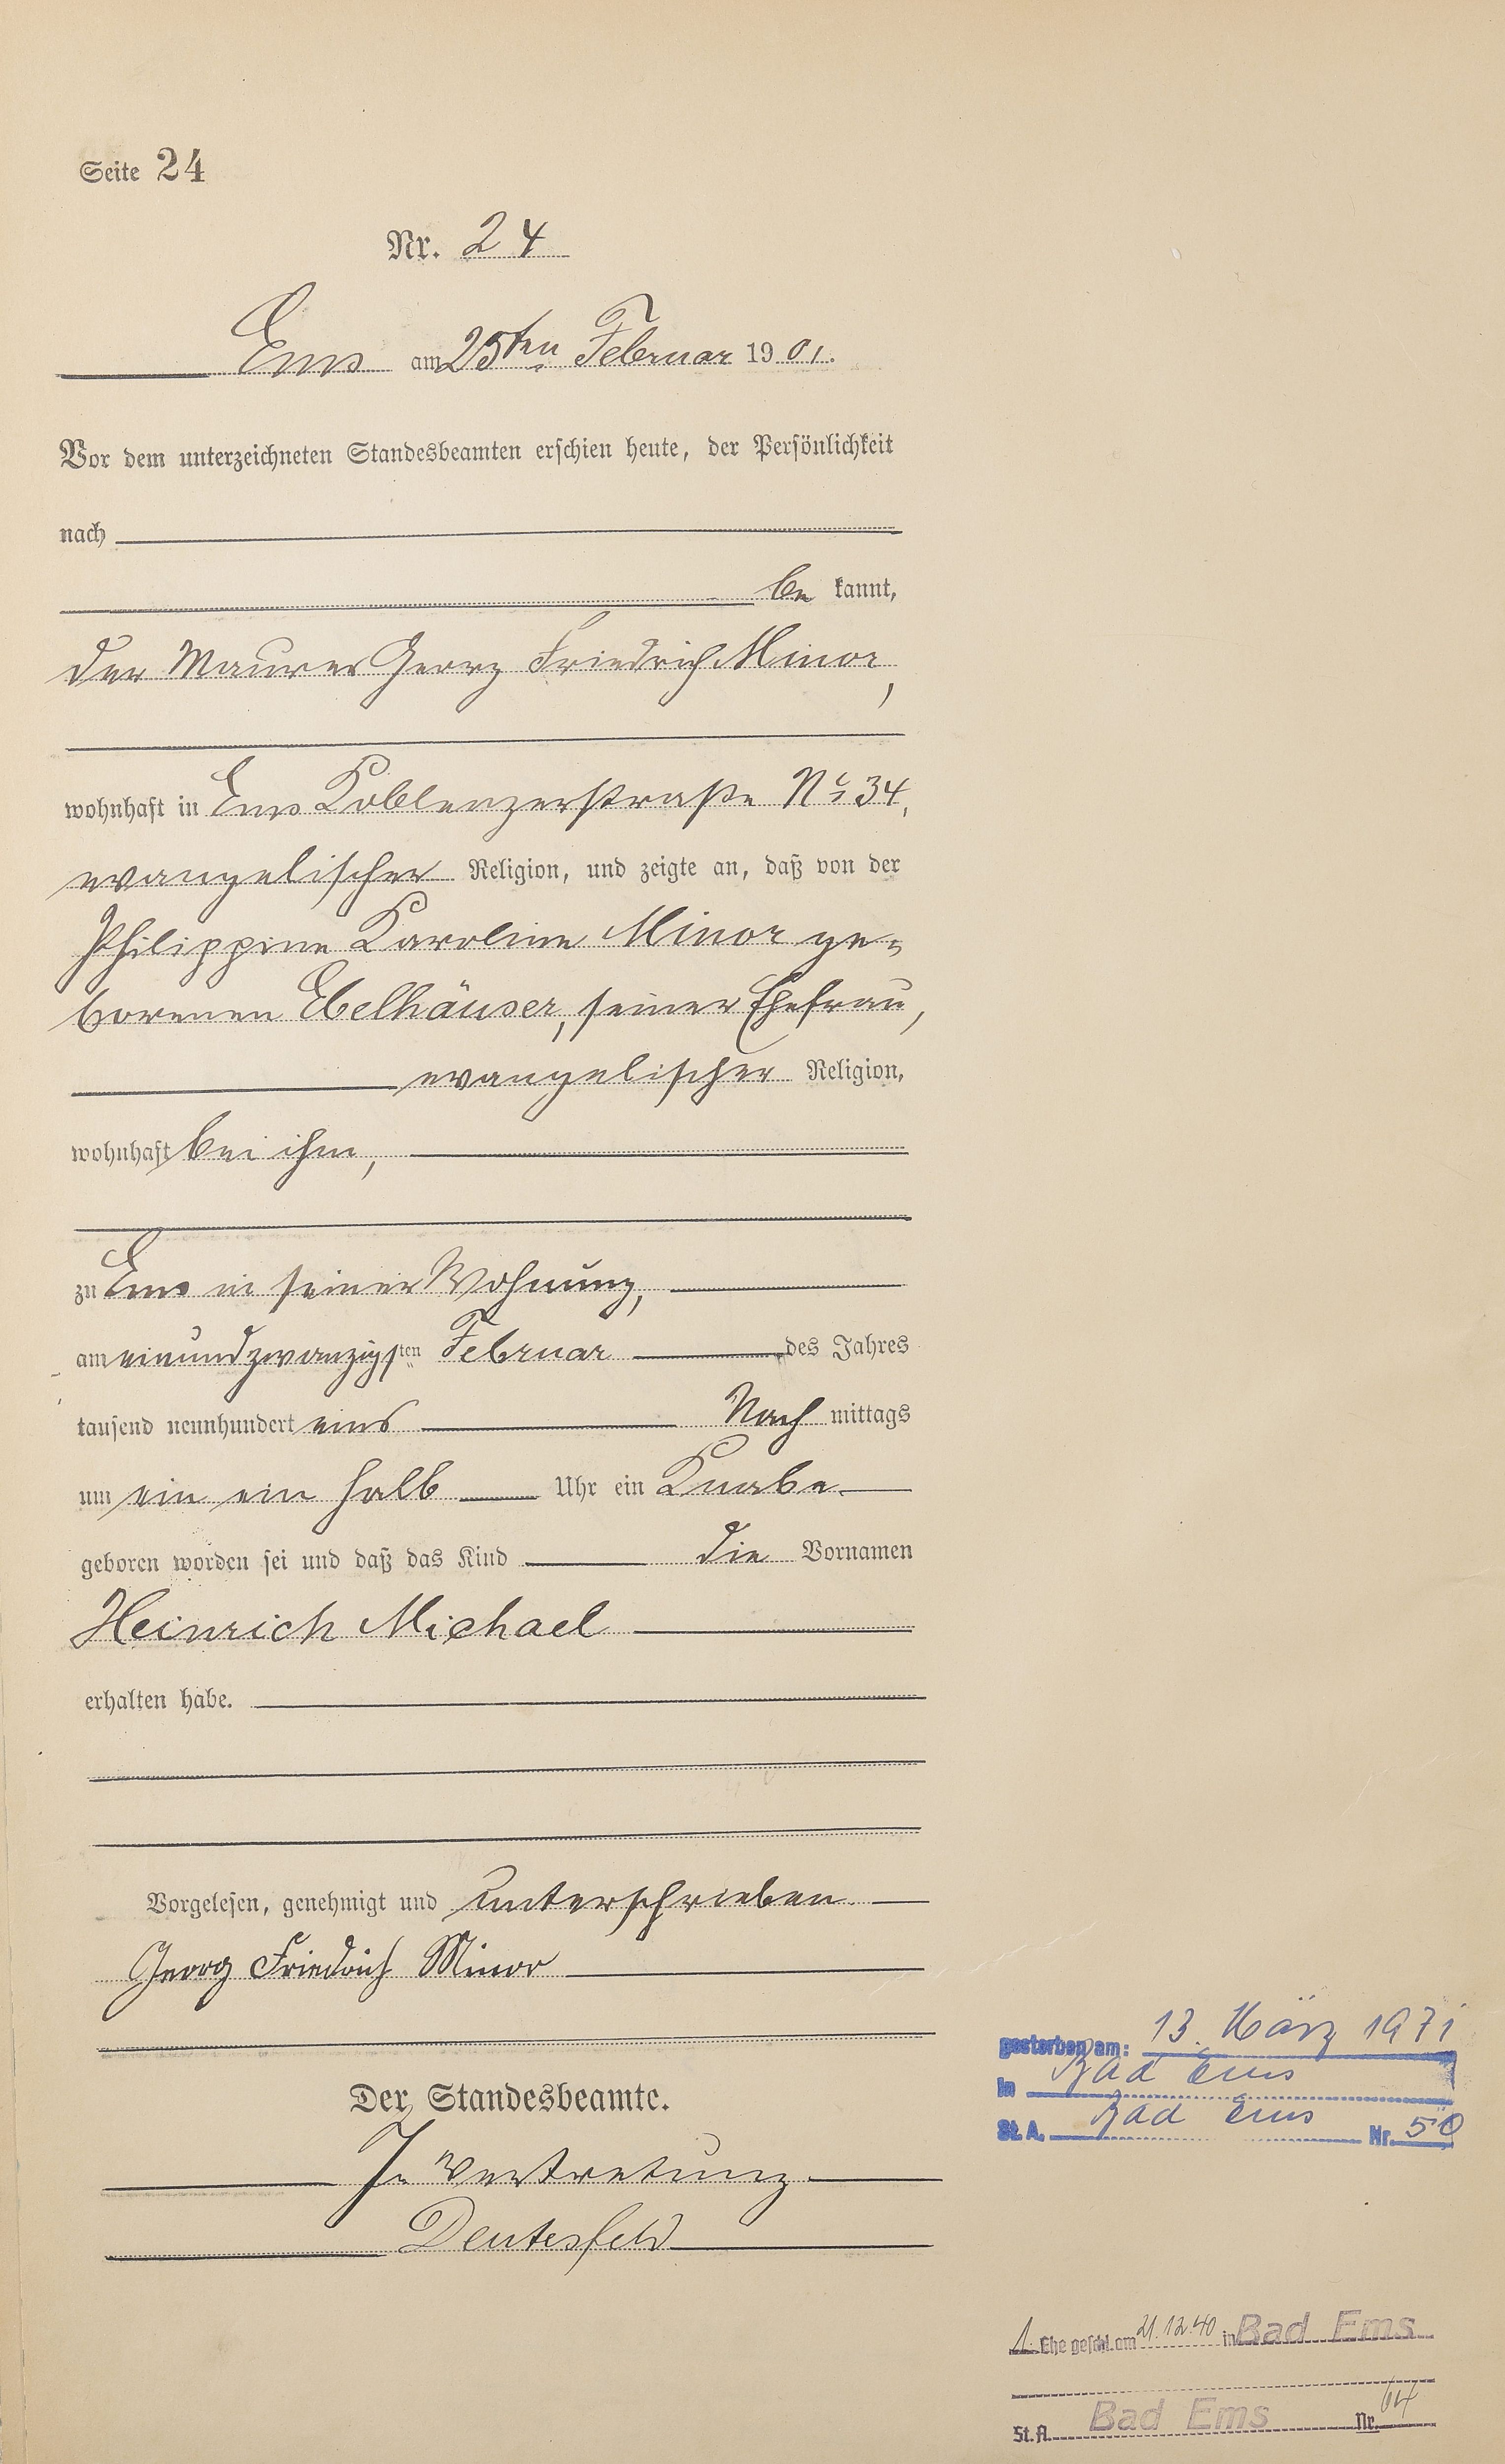 Seite 24
Nr. 24
Ems am 25ten Februar 1901.
Vor dem unterzeichneten Standesbeamten erschien heute, der Persönlichkeit
nach
be kannt,
der Maurer Georg Friedrich Minor,
wohnhaft in Ems Koblenzerstraße No 34,
evangelischer Religion, und zeigte an, daß von der
Philippine Karoline Minor ge=
borenen Ebelhäuser, seiner Ehefrau,
evangelischer Religion,
wohnhaft bei ihm,
zu Ems in seiner Wohnung,
am einundzwanzigsten Februar des Jahres
tausend neunhundert eins Nach mittags
um ein ein halb Uhr ein Knabe
geboren worden sei und daß das Kind die Vornamen
Heinrich Michael
erhalten habe.
Vorgelesen, genehmigt und unterschrieben
Georg Friedrich Minor
Der Standesbeamte.
In Vertretung
Deutesfeld
gestorben am: 13. März 1971
in Bad Ems
St. A. Bad Ems Nr. 50
1. Ehe geschl. am 21.12.40 in Bad Ems
St. A. Bad Ems Nr. 64